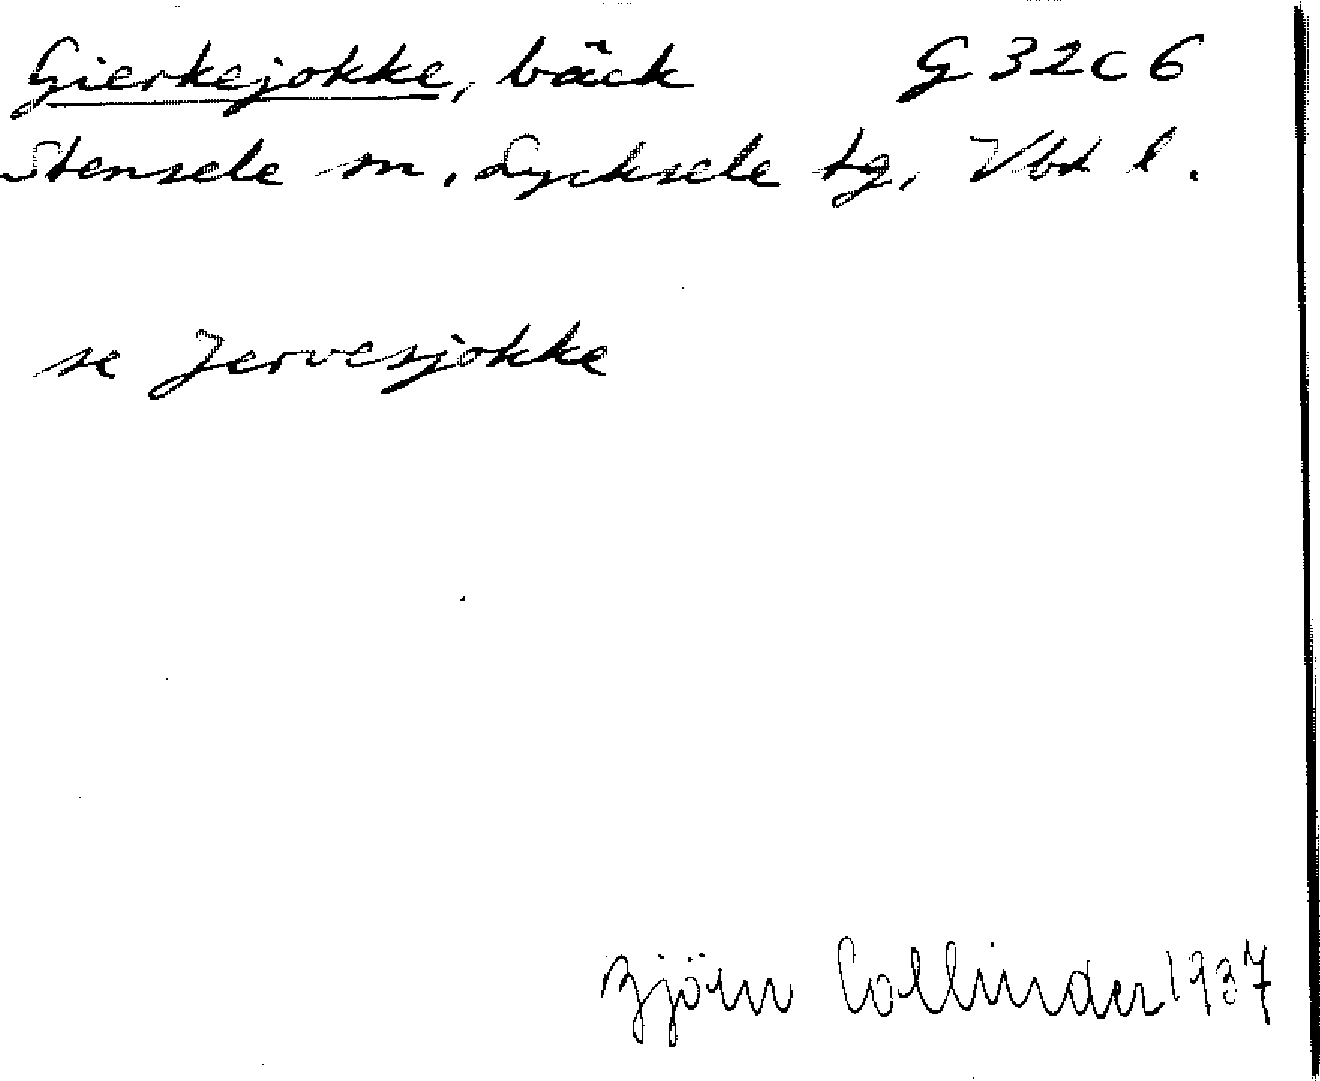 Gierkejokke, bäck G 32 C 6
Stensele sn, Lycksele tg, Vbt l.
se Jervesjokke
Björn Collinder 1937